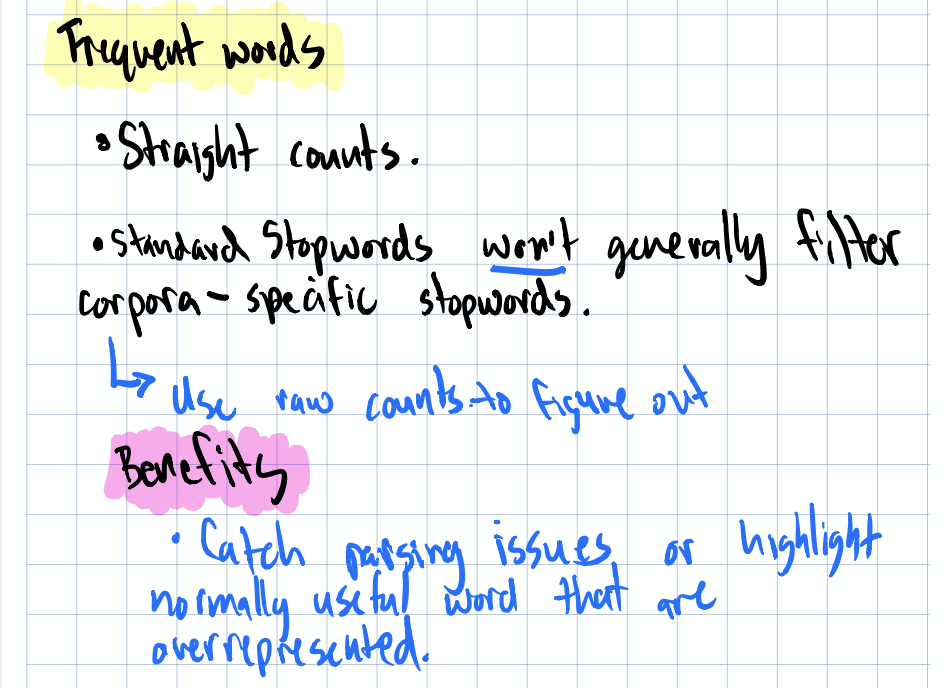 Frequent words
• Straight counts.
• Standard Stopwords won't generally filter
corpora-specific stopwords.
↳ Use raw counts to figure out
Benefits
• Catch parsing issues or highlight
normally useful word that are
overrepresented.